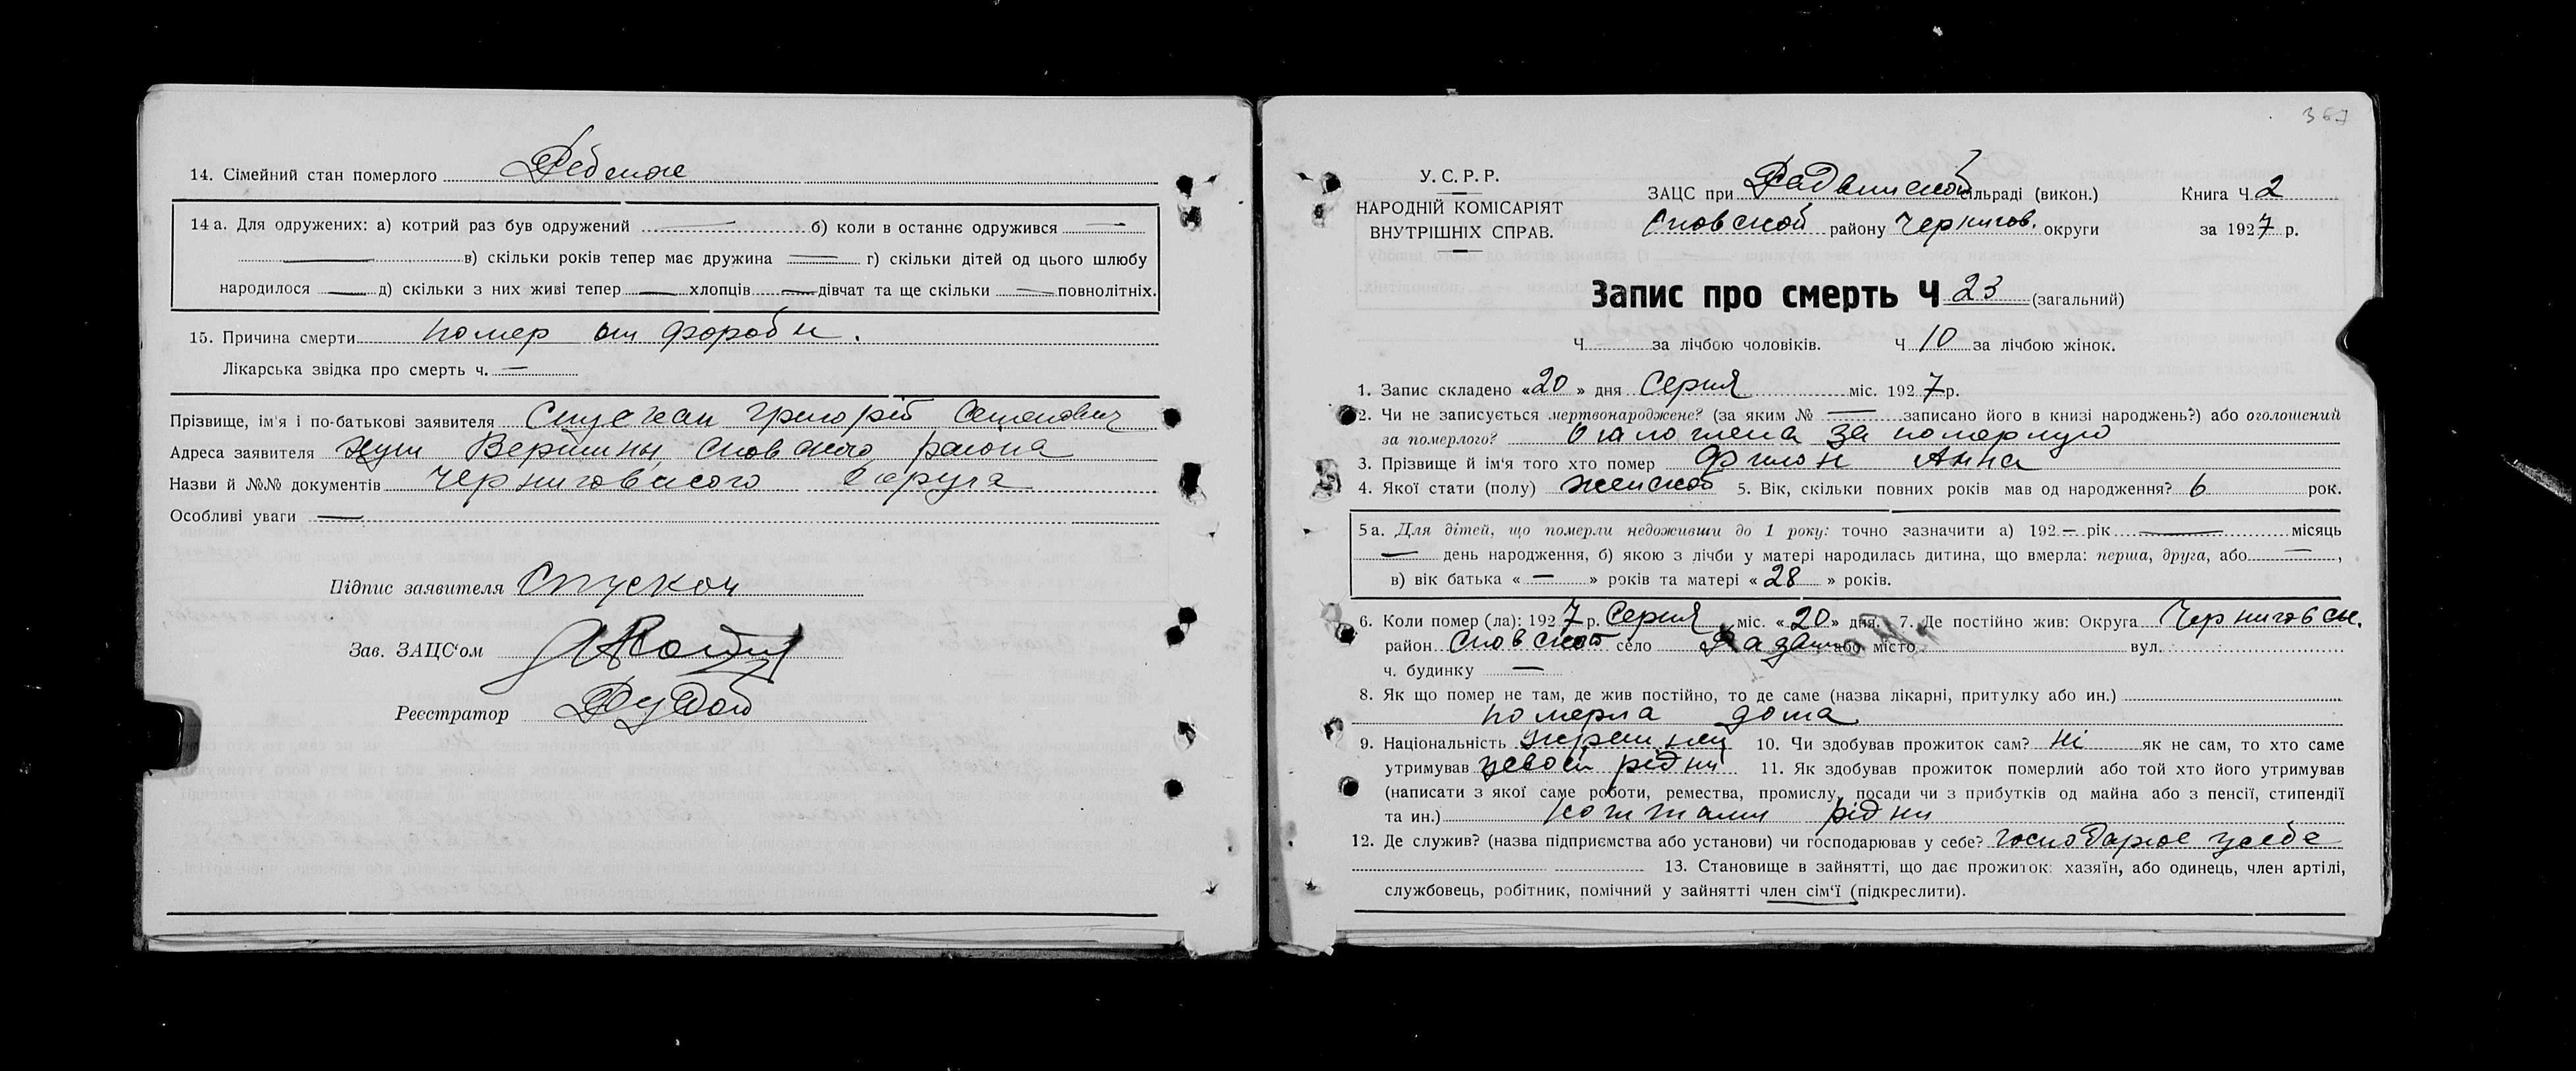 14. Сімейний стан померлого Ребенок
14 а. Для одружених: а) котрий раз був одружений — б) коли в останнє одружився —
— в) скільки років тепер має дружина — г) скільки дітей од цього шлюбу
народилося — д) скільки з них живі тепер — хлопців — дівчат та ще скільки — повнолітніх.
15. Причина смерти помер от
Лікарська звідка про смерть ч. —
Прізвище, ім'я і по-батькові заявителя Григорій Семенович
Адреса заявителя хут Вершины Сновского района
Назви й №№ документів Черниговского округа
Особливі уваги —
Підпис заявителя
Зав. ЗАЦС'ом
Реєстратор
367
У. С. Р. Р.
НАРОДНІЙ КОМІСАРІЯТ
ВНУТРІШНІХ СПРАВ.
ЗАЦС при сільраді (викон.) Книга Ч 2
Сновской району Чернигов. округи за 1927 р.
Запис про смерть Ч 23 (загальний)
Ч за лічбою чоловіків. Ч 10 за лічбою жінок.
1. Запис складено «20» дня Серпня міс. 1927 р.
2. Чи не записується мертвонароджене? (за яким № — записано його в книзі народжень?) або оголошений
за померлого? за померлую
3. Прізвище й ім'я того хто помер Филон Анна
4. Якої стати (полу) женской 5. Вік, скільки повних років мав од народження? 6 рок.
5 а. Для дітей, що померли недоживши до 1 року: точно зазначити а) 192 — рік — місяць
— день народження, б) якою з лічби у матері народилась дитина, що вмерла: перша, друга, або — ,
в) вік батька « — » років та матері « 28 » років.
6. Коли помер (ла): 1927 р. Серпня міс. «20» дня. 7. Де постійно жив: Округа Черниговск.
район Сновской село або місто вул.
ч. будинку —
8. Як що помер не там, де жив постійно, то де саме (назва лікарні, притулку або ин.)
померла дома
9. Національність 10. Чи здобував прожиток сам? Ні як не сам, то хто саме
утримував рідни 11. Як здобував прожиток померлий або той хто його утримував
(написати з якої саме роботи, ремества, промислу, посади чи з прибутків од майна або з пенсії, стипендії
та ин.) коштами рідни
12. Де служив? (назва підприємства або установи) чи господарював у себе? господарює у себе
13. Становище в зайнятті, що дає прожиток: хазяїн, або одинець, член артілі,
службовець, робітник, помічний у зайнятті член сім'ї (підкреслити).